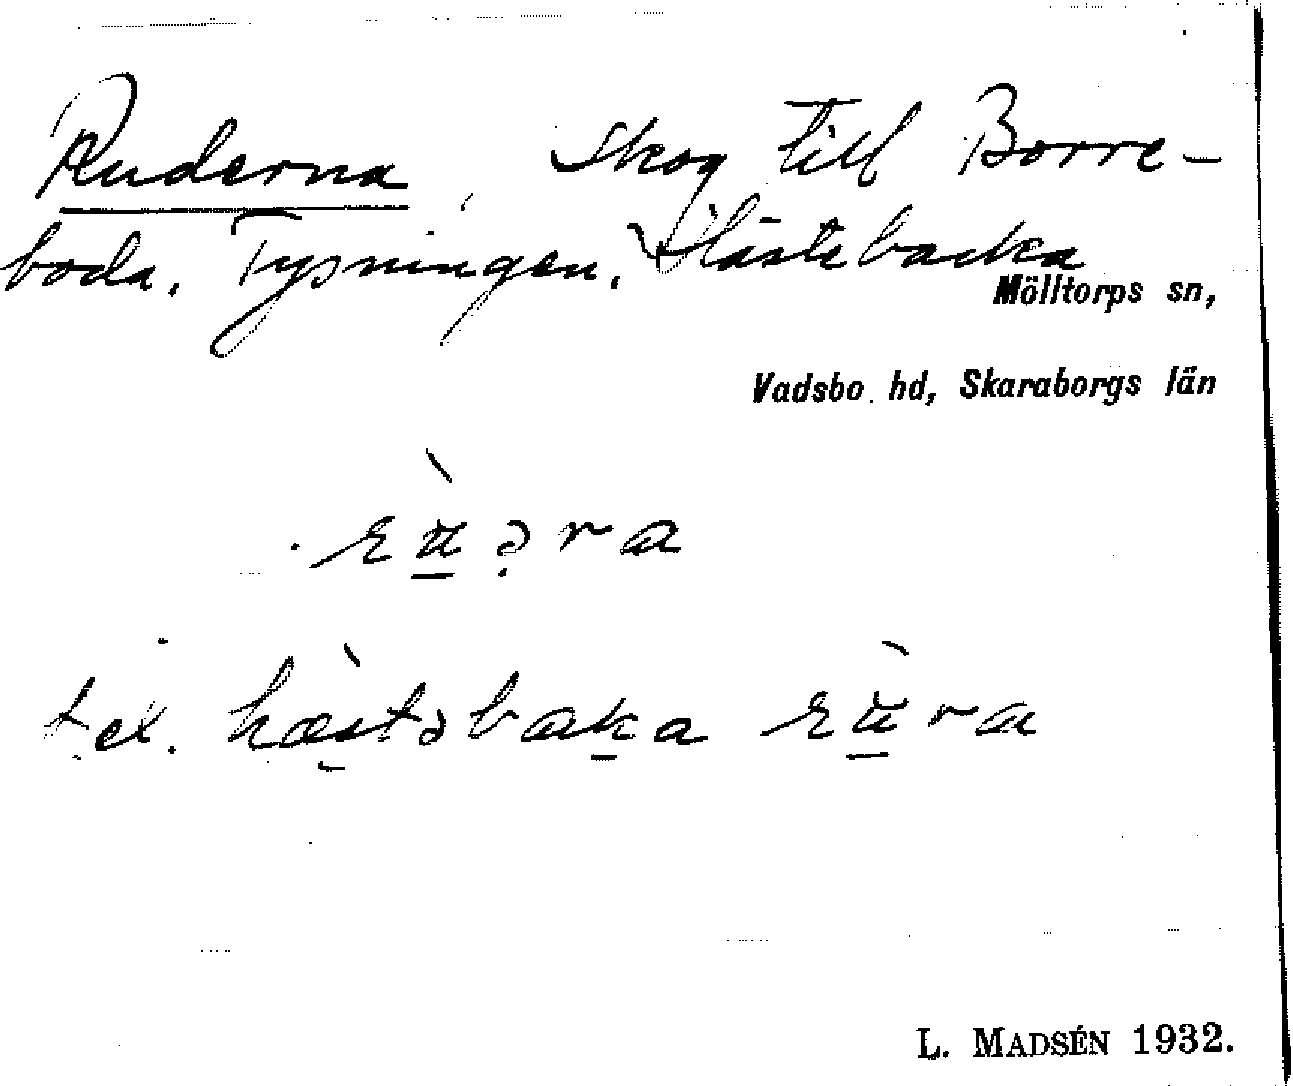 Ruderna, Skog till Borre-
boda, Tysningen, Hästebacka
Mölltorps sn,
Vadsbo hd, Skaraborgs län
t ex. hæstəbaka
L. MADSÉN 1932.